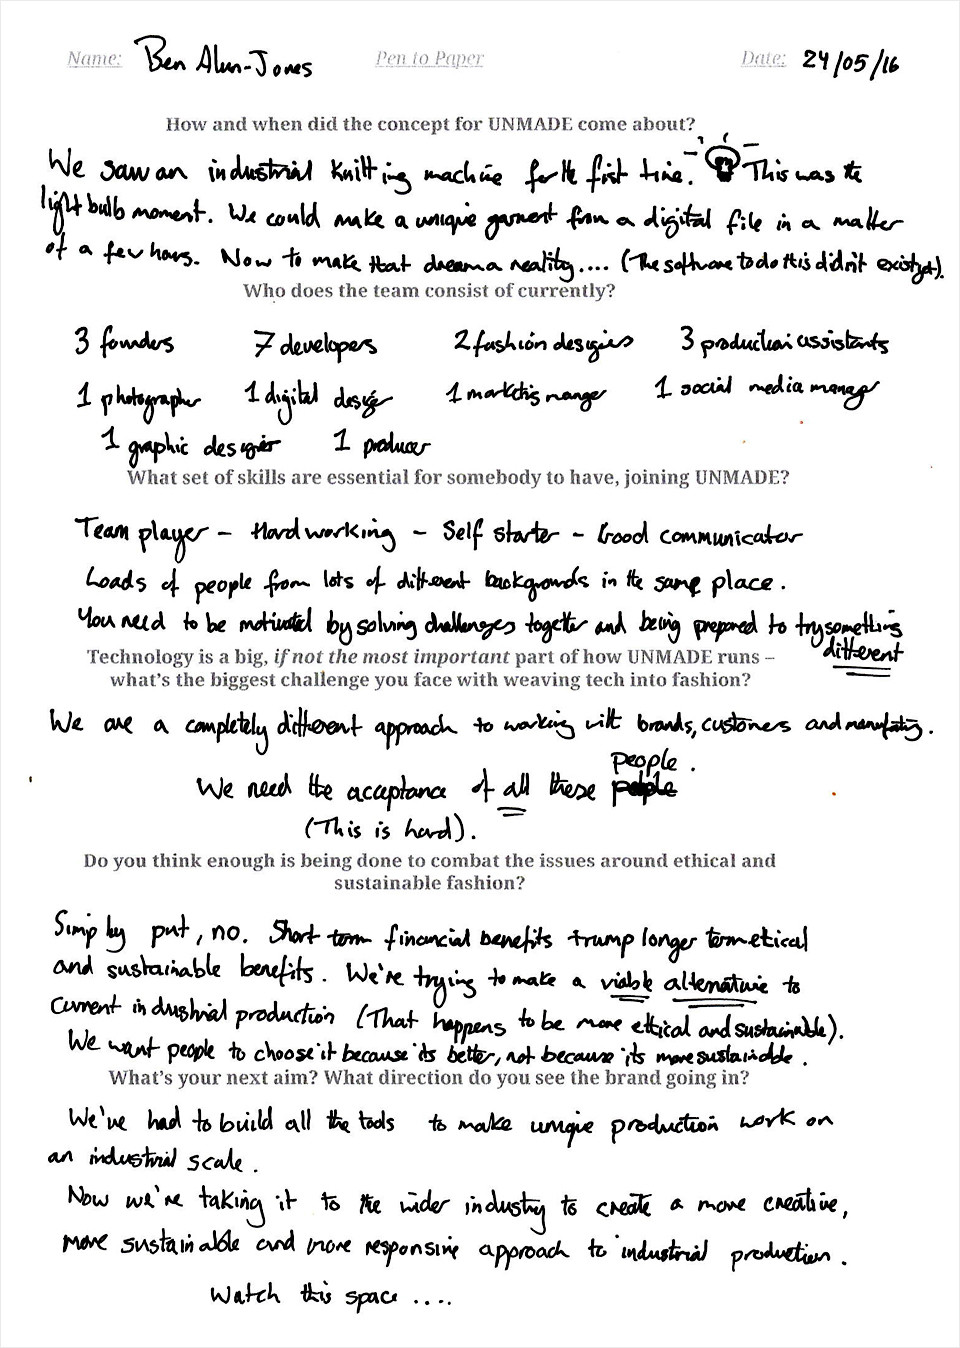 Name: Ben Alun-Jones Pen to Paper Date: 24/05/16
How and when did the concept for UNMADE come about?
We saw an industrial knitting machine for the first time. This was the
light bulb moment. We could make a unique garment from a digital file in a matter
of a few hours. Now to make that dream a reality.... (The software to do this didn't exist yet).
Who does the team consist of currently?
3 founders 7 developers 2 fashion designers 3 production assistants
1 photographer 1 digital designer 1 marketing manager 1 social media manager
1 graphic designer 1 producer
What set of skills are essential for somebody to have, joining UNMADE?
Team player - Hard working - Self starter - Good communicator
Loads of people from lots of different backgrounds in the same place.
You need to be motivated by solving challenges together and being prepared to try something
different
Technology is a big, if not the most important part of how UNMADE runs –
what's the biggest challenge you face with weaving tech into fashion?
We are a completely different approach to working with brands, customers and manufacturing.
people.
We need the acceptance of all these people
(This is hard).
Do you think enough is being done to combat the issues around ethical and
sustainable fashion?
Simply put, no. Short term financial benefits trump longer term ethical
and sustainable benefits. We're trying to make a viable alternative to
current industrial production (That happens to be more ethical and sustainable).
We want people to choose it because its better, not because its more sustainable.
What's your next aim? What direction do you see the brand going in?
We've had to build all the tools to make unique production work on
an industrial scale.
Now we're taking it to the wider industry to create a more creative,
more sustainable and more responsive approach to industrial production.
Watch this space ....